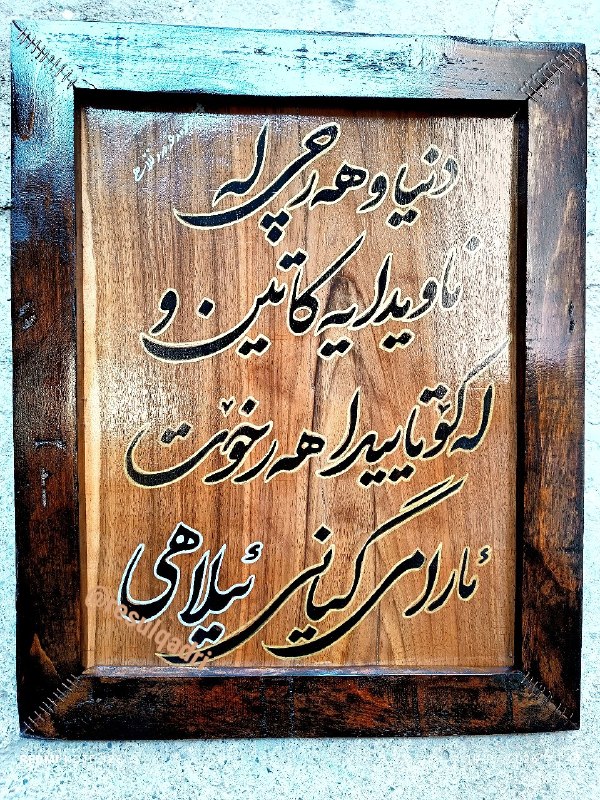 دنیا و هەرچی لە
ناویدایە کاتین و
لە کۆتاییدا هەر خۆت
ئارامی گیانی ئیلاهی
@rasulqadri